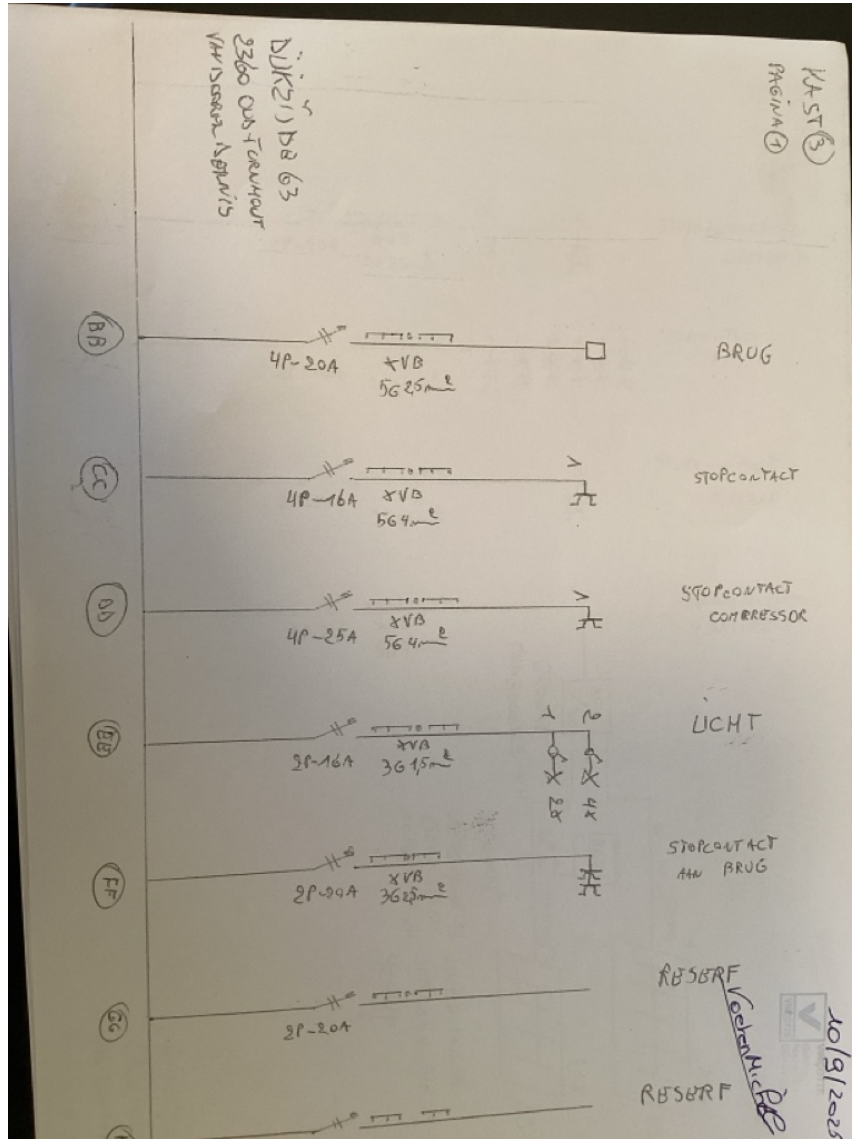 KAST ③
PAGINA ①
2360 OUD-TURNHOUT
BB
4P-20A
XVB
5G2,5m²
BRUG
CC
4P-16A
XVB
5G4m²
1
STOPCONTACT
DD
4P-25A
XVB
5G4m²
1
STOPCONTACT
COMPRESSOR
EE
2P-16A
XVB
3G1,5m²
1 2
2x 4x
LICHT
FF
2P-20A
XVB
3G2,5m²
STOPCONTACT
AAN BRUG
GG
2P-20A
RESERF
RESERF
10/9/2025